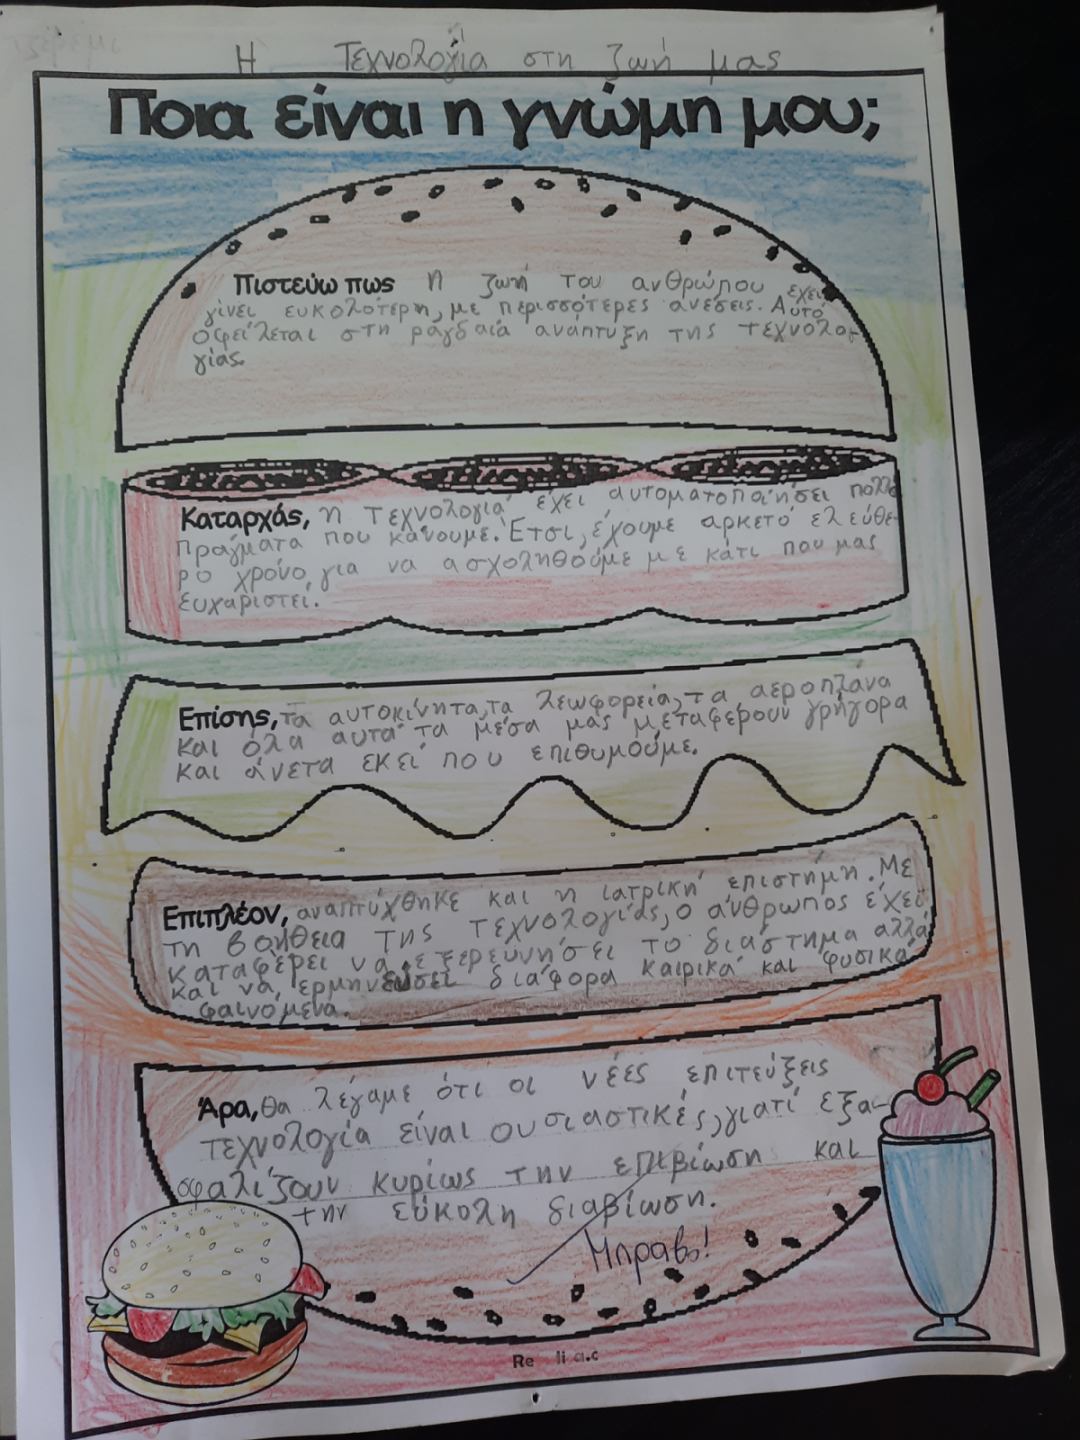 Η Τεχνολογία στη ζωή μας
Ποια είναι η γνώμη μου;
Πιστεύω πως η ζωή του ανθρώπου έχει
γίνει ευκολότερη, με περισσότερες ανέσεις. Αυτό
οφείλεται στη ραγδαία ανάπτυξη της τεχνολο-
γίας.
Καταρχάς, η τεχνολογία έχει αυτοματοποιήσει πολλά
πράγματα που κάνουμε. Έτσι, έχουμε αρκετό ελεύθε-
ρο χρόνο, για να ασχοληθούμε με κάτι που μας
ευχαριστεί.
Επίσης, τα αυτοκίνητα, τα λεωφορεία, τα αεροπλάνα
και όλα αυτά τα μέσα μας μεταφέρουν γρήγορα
και άνετα εκεί που επιθυμούμε.
Επιπλέον, αναπτύχθηκε και η ιατρική επιστήμη. Με
τη βοήθεια της τεχνολογίας, ο άνθρωπος έχει
καταφέρει να εξερευνήσει το διάστημα αλλά
και να ερμηνεύσει διάφορα καιρικά και φυσικά
φαινόμενα.
Άρα, θα λέγαμε ότι οι νέες επιτεύξεις
τεχνολογία είναι ουσιαστικές, γιατί εξα-
σφαλίζουν κυρίως την επιβίωση και
την εύκολη διαβίωση.
Μπράβο!